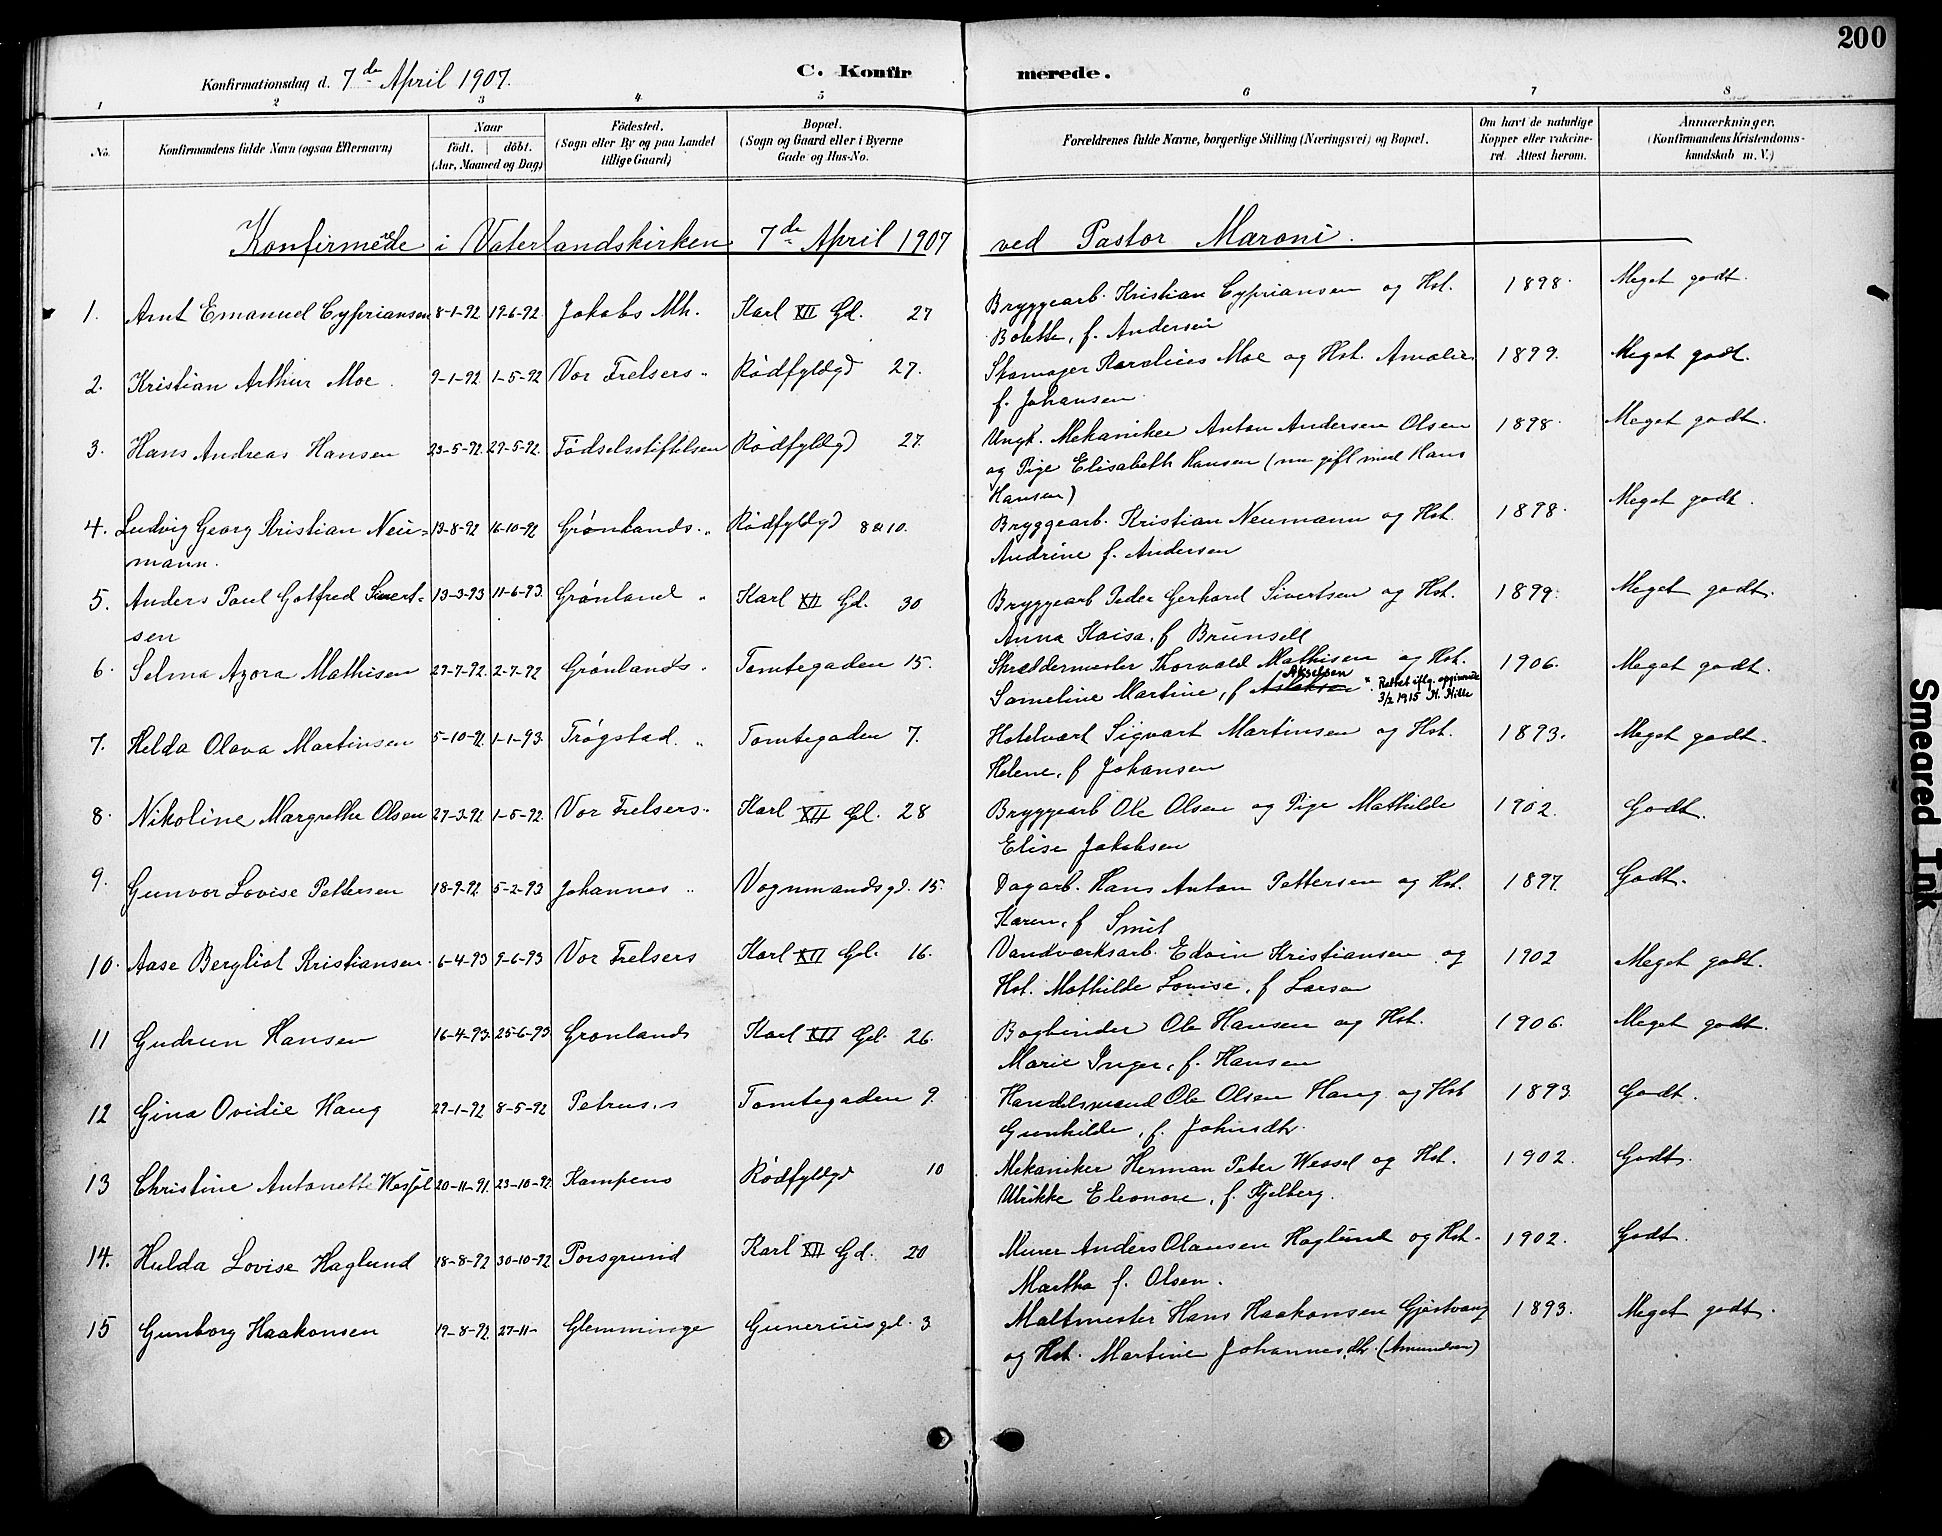 200
Konfirmationsdag d. 7de April 1907.
C. Konfirmerede.
1 2 3 4 5 6 7 8
No.
Konfirmandens fulde Navn (ogsaa Efternavn)
Naar
födt. döbt.
(Aar, Maaned og Dag)
Födested.
(Sogn eller By og paa Landet
tillige Gaard)
Bopæl.
(Sogn og Gaard eller i Byerne
Gade og Hus-No.
Forældrenes fulde Navne, borgerlige Stilling (Næringsvei) og Bopæl.
Om havt de naturlige
Kopper eller vakcine-
ret. Attest herom.
Anmærkninger.
(Konfirmandens Kristendoms-
kundskab m. V.)
Konfirmerede i Vaterlandskirken 7de April 1907 ved Pastor Maroni.
1. Arnt Emanuel Cypriansen 8-1-92 19-6-92 Jakobs Mh. Karl XII Gd. 27 Bryggearb. Kristian Cypriansen og Hst. 1898. Meget godt.
Bolette, f. Andersen
2. Kristian Arthur Moe. 9-1-92 1-5-92 Vor Frelsers „ Rødfyldgd 27. Skomager Karolius Moe og Hst. Amalie 1899. Meget godt.
f. Johansen
3. Hans Andreas Hansen 23-5-92 29-5-92 Fødselsstiftelsen Rødfyldgd 27. Ungk. Mekaniker Anton Andersen Olsen 1898. Meget godt.
og Pige Elisabeth Hansen (nu gift med Hans
Hansen)
4. Ludvig Georg Kristian Neu- 13-8-92 16-10-92 Grønlands „ Rødfyldgd 8 & 10. Bryggearb. Kristian Neumann og Hst. 1898. Meget godt.
mann. Andrine f. Andersen
5. Anders Paul Gotfred Sivert- 13-3-93 11-6-93. Grønland „ Karl XII Gd. 30 Bryggearb Peder Gerhard Sivertsen og Hst. 1899. Meget godt.
sen Anna Kaisa, f Brunsell
6. Selma Azora Mathisen 27-7-92 2-7-92 Grønlands „ Tomtegaden 15. Skræddermester Thorvald Mathisen og Hst. 1906. Meget godt.
Akselsen
Sameline Martine, f Aslaksen ". Rettet iflg. opgivende
3/2 1915 H. Hille
7. Helda Olava Martinsen 5-10-92. 1-1-93. Trøgstad. „ Tomtegaden 7. Hotelvært Sigvart Martinsen og Hst. 1893. Meget godt.
Helene, f Johansen
8. Nikoline Margrethe Olsen 27-3-92 1-5-92. Vor Frelsers „ Karl XII Gd. 28 Bryggearb Ole Olsen og Pige Mathilde 1902. Godt.
Elise Jakobsen
9. Gunvor Lovise Pettersen 18-9-92 5-2-93 Johannes „ Vognmandsgd. 15. Dagarb. Hans Anton Pettersen og Hst. 1897. Godt.
Karen, f Smit
10. Aase Bergliot Kristiansen. 6-4-93 9-6-93 Vor Frelsers Karl XII Gd. 16. Vandværksarb. Edvin Kristiansen og 1902 Meget godt.
Hst. Mathilde Lovise, f Larsen
11 Gudrun Hansen 16-4-93. 25-6-93 Grønlands Karl XII Gd. 26. Bogbinder Ole Hansen og Hst. 1906. Meget godt.
Marie Inger, f. Hansen
12 Gina Ovidie Haug 29-1-92 8-5-92 Petrus „ Tomtegaden 9. Handelsmand Ole Olsen Haug og Hst 1893. Godt.
Gunhilde, f. Johnsdtr.
13 Christine Antonette Wessel 20-11-91. 23-10-92 Kampens Rødfyldgd 10 Mekaniker Herman Peter Wessel og Hst. 1902. Godt.
Ulrikke Eleonore, f. Kjelberg.
14. Hulda Lovise Haglund 18-8-92 30-10-92 Porsgrund Karl XII Gd. 20 Murer Anders Olausen Haglund og Hst. 1902. Godt.
Martha f. Olsen.
15 Gunborg Haakonsen 19-8-92 27-11- Glemminge Guneriusgd. 3 Maltmester Hans Haakonsen Gjøstvang 1893. Meget godt.
og Hst. Martine Johannesdtr. (Amundsen)
Smeared Ink